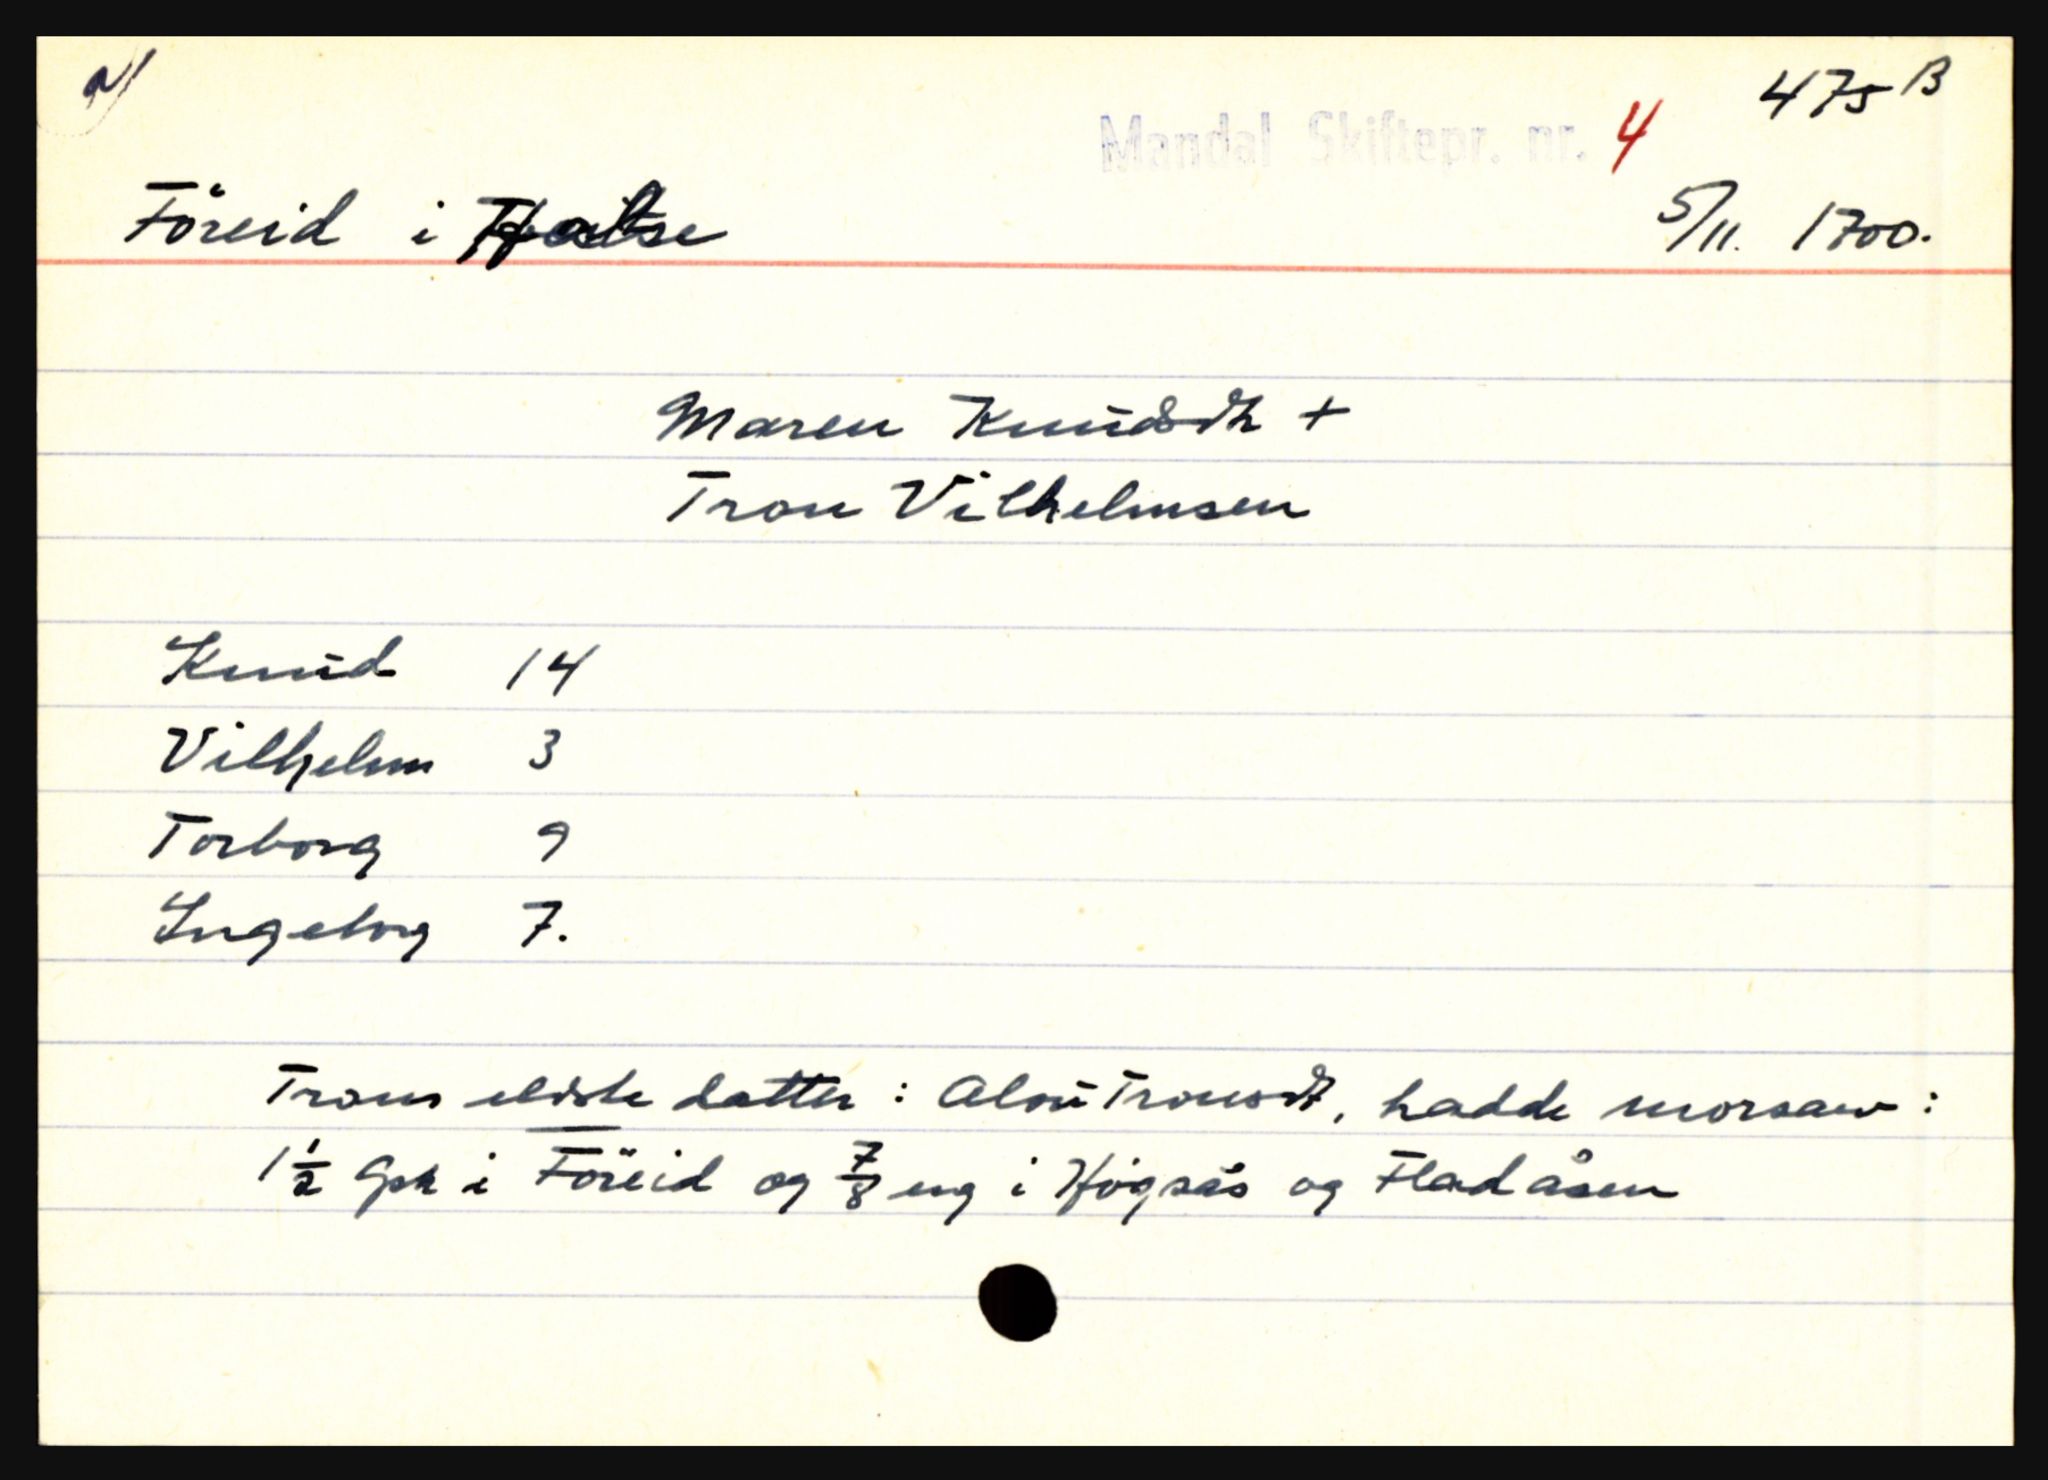 475 B
Mandal Skiftepr. nr. 4
Föreid i Halse 5/11. 1700.
Maren Knudsdtr +
Tron Vilhelmsen
Knud 14
Vilhelm 3
Torborg 9
Ingeborg 7.
Trons eldste datter : Aloü Tronsdt, hadde morsarv :
1 1/2 Gsk i Föreid og 7/8 eng i Høgsås og Fladåsen